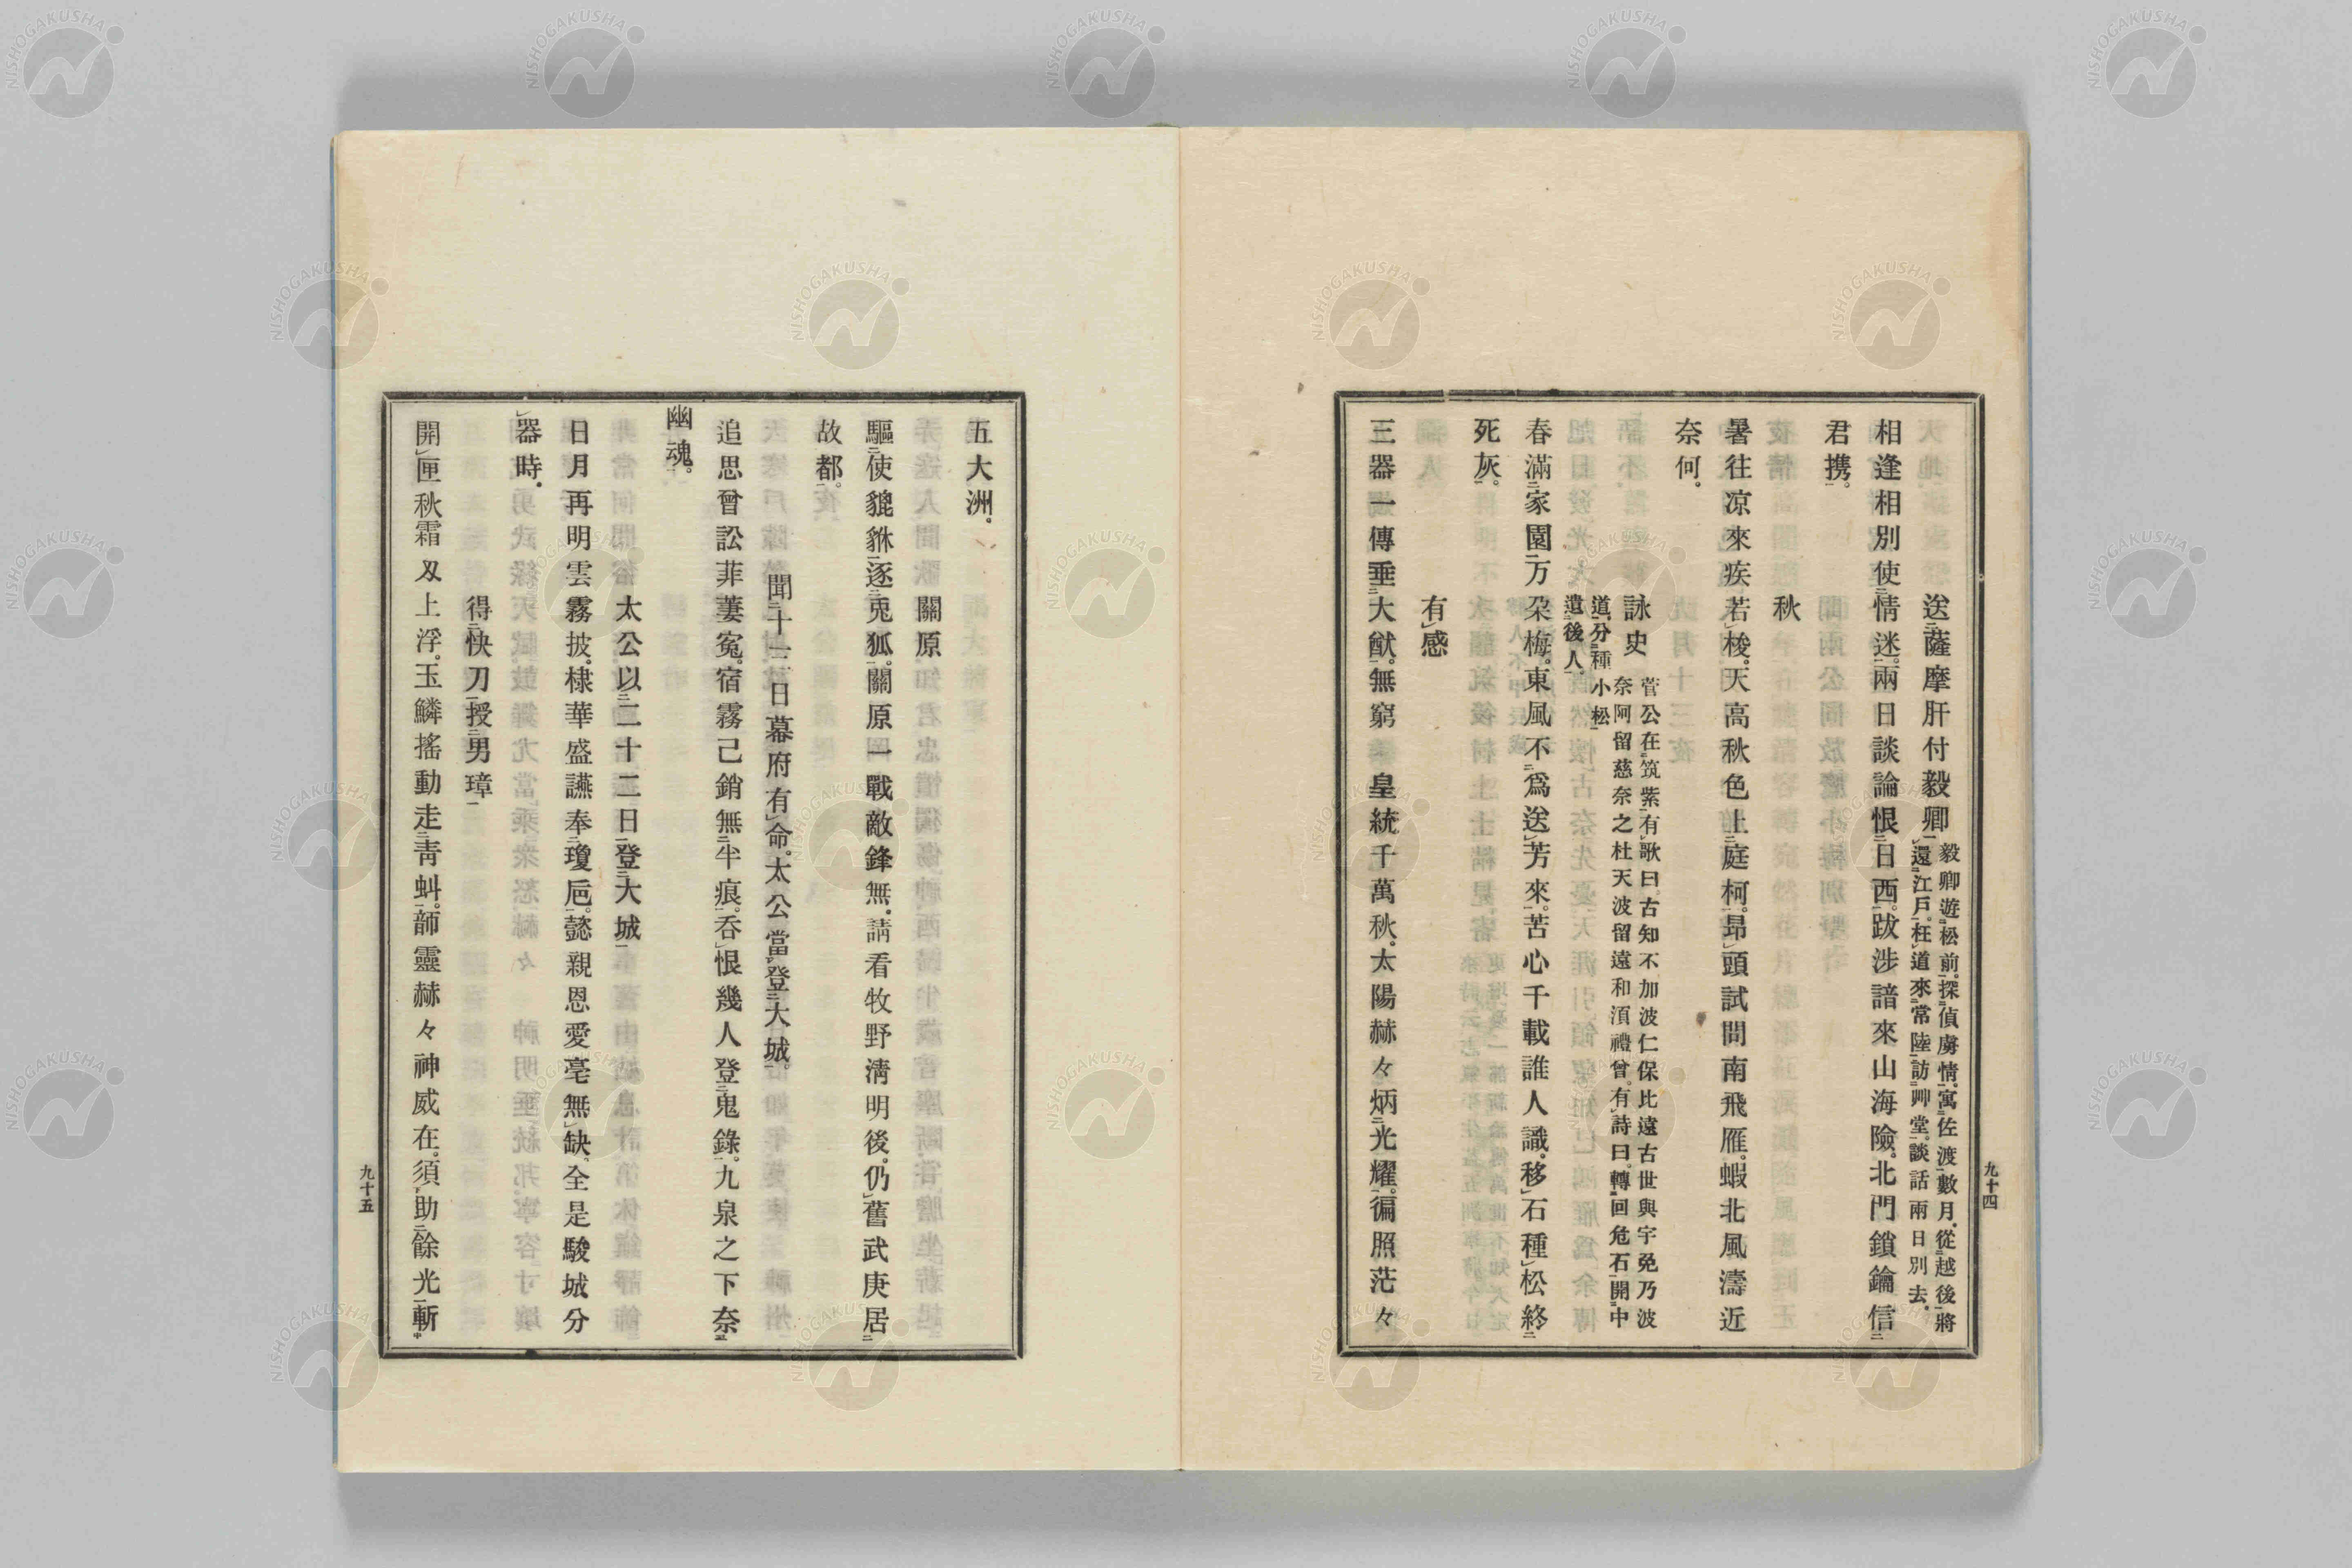 送薩摩肝付毅卿 毅卿遊松前。探偵虜情。寓佐渡數月。從越後將
還江戶。枉道來常陸訪艸堂。談話兩日別去。
相逢相別使情迷。兩日談論恨日西。跋涉諳來山海險。北門鎖鑰信
君携。
秋
暑往凉來疾若梭。天高秋色上庭柯。昂頭試問南飛雁。蝦北風濤近
奈何。
詠史 菅公在筑紫有歌曰。古知不加波仁保比遠古世與宇免乃波
奈阿留慈奈之杜天波留遠和湏禮曾。有詩曰。轉回危石開中
道。分種小松
遺後人。
春滿家園万朶梅。東風不爲送芳來。苦心千載誰人識。移石種松終
死灰。
有感
三器一傳垂大猷。無窮 皇統千萬秋。太陽赫々炳光耀。徧照茫々
九十四
五大洲。
關原
驅使貔貅逐兎狐。關原一戰敵鋒無。請看牧野淸明後。仍舊武庚居
故都。
聞二十三日幕府有命。太公當登大城。
追思曾訟菲萋寃。宿霧己銷無半痕。呑恨幾人登鬼錄。九泉之下奈
幽魂。
太公以二十二日登大城
日月再明雲霧披。棣華盛讌奉瓊巵。懿親恩愛毫無缺。全是駿城分
器時。
得快刀授男璋
開匣秋霜刄上浮。玉鱗搖動走靑虯。韴靈赫々神威在。須助餘光斬
九十五